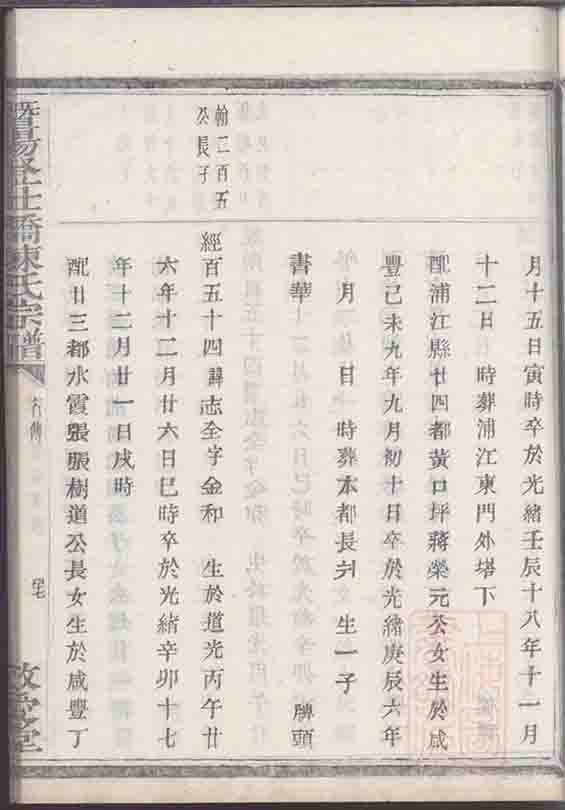 月十五日寅時卒於光緒壬辰十八年十一月
十二日 時葬浦江東門外塔下
配浦江縣廿四都黃口坪蔣榮元公女生於咸
豐己未九年九月初十日卒於光緒庚辰六年
月 日 時葬本都長 生一子
書華
翰二百五
公長子
經百五十四諱志全字金和 生於道光丙午廿
六年十二月廿六日巳時卒於光緒辛卯十七
年十二月廿一日戌時
配廿三都水霞張張樹道公長女生於咸豐丁
暨陽 橋陳氏宗譜